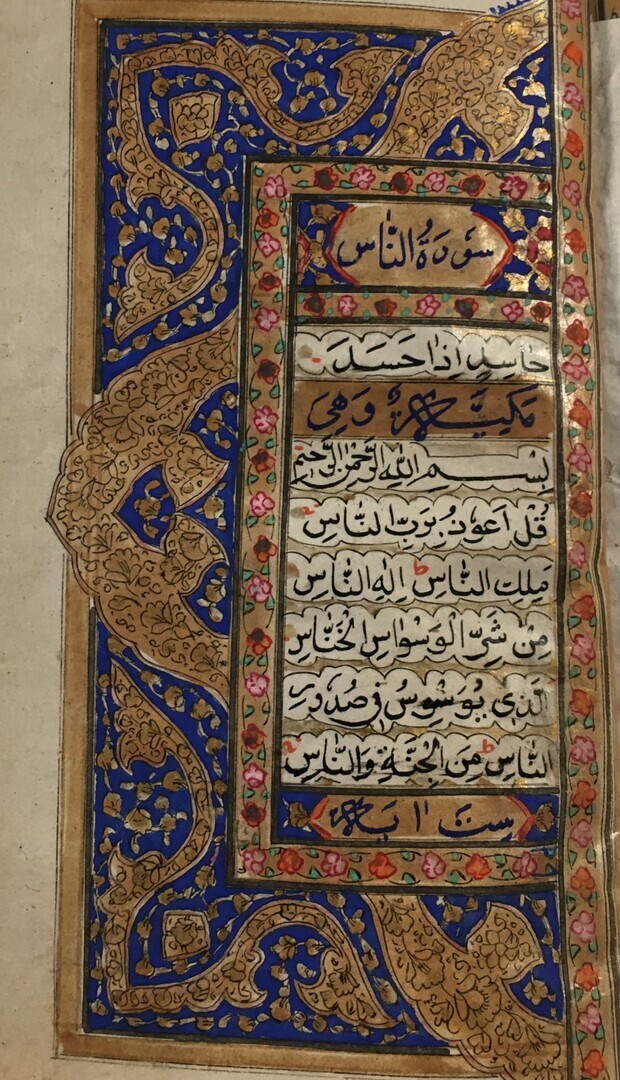 سُورَةُ النَّاس
حَاسِدٍ اِذَا حَسَدَ
مَكيَّة وَهِىَ
بِسْمِ اللهِ الرَّحْمٰنِ الرَّحيمِ
قُلْ اَعُوذُ بِرَبِّ النَّاسِ
مَلِكِ النَّاسِ ط اِلٰهِ النَّاسِ
مِنْ شَرِّ الْوَسْوَاسِ الْخَنَّاسِ
الَّذِى يُوَسْوِسُ فِى صُدُورِ
النَّاسِ ط مِنَ الْجِنَّةِ وَالنَّاسِ
ست اٰية